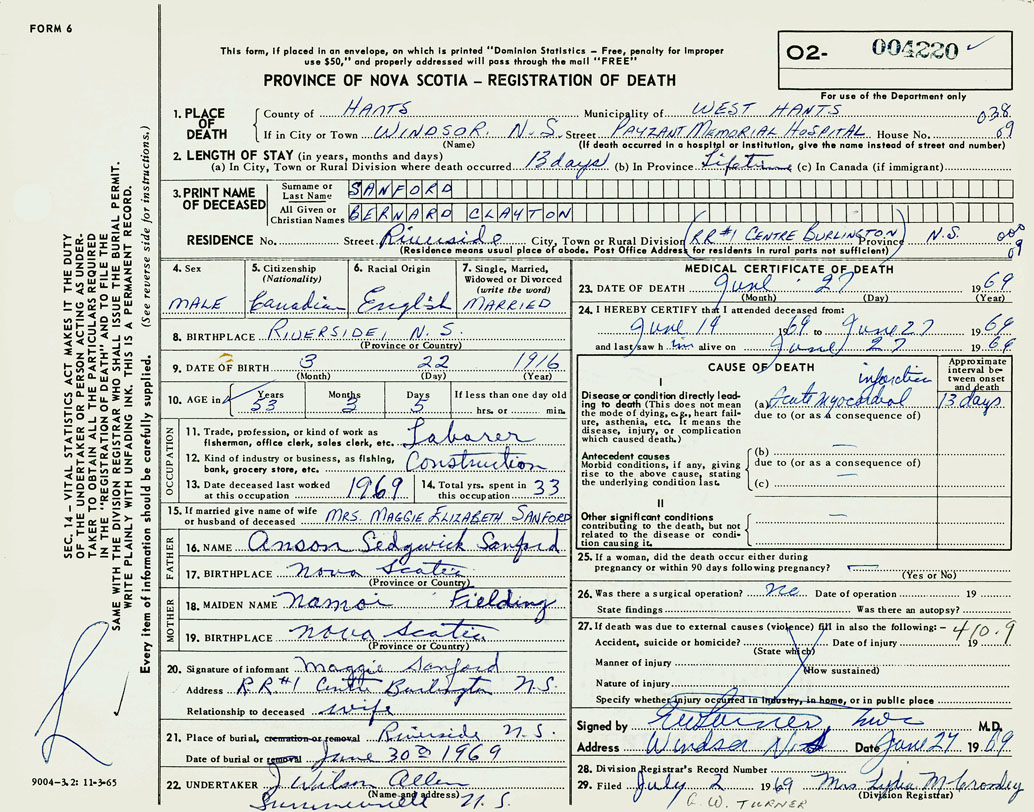 FORM 6
This form, if placed in an envelope, on which is printed "Dominion Statistics – Free, penalty for improper
use $50," and properly addressed will pass through the mail "FREE"
PROVINCE OF NOVA SCOTIA – REGISTRATION OF DEATH
O2- 004220
For use of the Department only
1. PLACE OF DEATH
County of HANTS Municipality of WEST HANTS 038
If in City or Town WINDSOR, N.S. Street PAYZANT MEMORIAL HOSPITAL House No. 09
(Name) (If death occurred in a hospital or institution, give the name instead of street and number)
2. LENGTH OF STAY (in years, months and days)
(a) In City, Town or Rural Division where death occurred 13 days (b) In Province Lifetime (c) In Canada (if immigrant)
3. PRINT NAME OF DECEASED
Surname or Last Name SANFORD
All Given or Christian Names BERNARD CLAYTON
RESIDENCE No. Street Riverside City, Town or Rural Division (RR#1 CENTRE BURLINGTON) Province N.S. 000
(Residence means usual place of abode. Post Office Address for residents in rural parts not sufficient) 09
4. Sex
MALE
5. Citizenship
(Nationality)
Canadian
6. Racial Origin
English
7. Single, Married,
Widowed or Divorced
(write the word)
MARRIED
8. BIRTHPLACE RIVERSIDE, N.S.
(Province or Country)
9. DATE OF BIRTH 3 22 1916
(Month) (Day) (Year)
10. AGE in Years Months Days If less than one day old
53 3 5 hrs. or min.
OCCUPATION
11. Trade, profession, or kind of work as
fisherman, office clerk, sales clerk, etc. Laborer
12. Kind of industry or business, as fishing,
bank, grocery store, etc. Construction
13. Date deceased last worked
at this occupation 1969
14. Total yrs. spent in
this occupation 33
15. If married give name of wife
or husband of deceased MRS. MAGGIE ELIZABETH SANFORD
FATHER
16. NAME Anson Sedgwick Sanford
17. BIRTHPLACE Nova Scotia
(Province or Country)
MOTHER
18. MAIDEN NAME Namoi Fielding
19. BIRTHPLACE Nova Scotia
(Province or Country)
20. Signature of informant Maggie Sanford
Address R.R#1 Centre Burlington N.S.
Relationship to deceased wife
21. Place of burial, cremation or removal Riverside N.S.
Date of burial or removal June 30 1969
22. UNDERTAKER J. Wilson Allen
(Name and address)
Summerville N.S.
MEDICAL CERTIFICATE OF DEATH
23. DATE OF DEATH June 27 1969
(Month) (Day) (Year)
24. I HEREBY CERTIFY that I attended deceased from:
June 14 1969 to June 27 1969
and last saw him alive on June 27 1969
CAUSE OF DEATH
Approximate
interval be-
tween onset
and death
I
Disease or condition directly lead-
ing to death (This does not mean
the mode of dying, e.g., heart fail-
ure, asthenia, etc. It means the
disease, injury, or complication
which caused death.)
infarction
(a) Acute myocardial 13 days
due to (or as a consequence of)
Antecedent causes
Morbid conditions, if any, giving
rise to the above cause, stating
the underlying condition last.
(b)
due to (or as a consequence of)
(c)
II
Other significant conditions
contributing to the death, but not
related to the disease or condi-
tion causing it.
25. If a woman, did the death occur either during
pregnancy or within 90 days following pregnancy?
(Yes or No)
26. Was there a surgical operation? No Date of operation 19
State findings Was there an autopsy?
27. If death was due to external causes (violence) fill in also the following: – 410.9
Accident, suicide or homicide? Date of injury 19
(State which)
Manner of injury
(How sustained)
Nature of injury
Specify whether injury occurred in industry, in home, or in public place
Signed by M.D.
Address Windsor NS Date June 27 1969
28. Division Registrar's Record Number
29. Filed July 2 1969 Mrs Lydia M Crossley
(Division Registrar)
G. W. TURNER
SEC. 14 – VITAL STATISTICS ACT MAKES IT THE DUTY
OF THE UNDERTAKER OR PERSON ACTING AS UNDER-
TAKER TO OBTAIN ALL THE PARTICULARS REQUIRED
IN THE "REGISTRATION OF DEATH" AND TO FILE THE
SAME WITH THE DIVISION REGISTRAR WHO SHALL ISSUE THE BURIAL PERMIT.
WRITE PLAINLY WITH UNFADING INK. THIS IS A PERMANENT RECORD.
Every item of information should be carefully supplied. (See reverse side for instructions.)
9004–3.2: 11-3-65